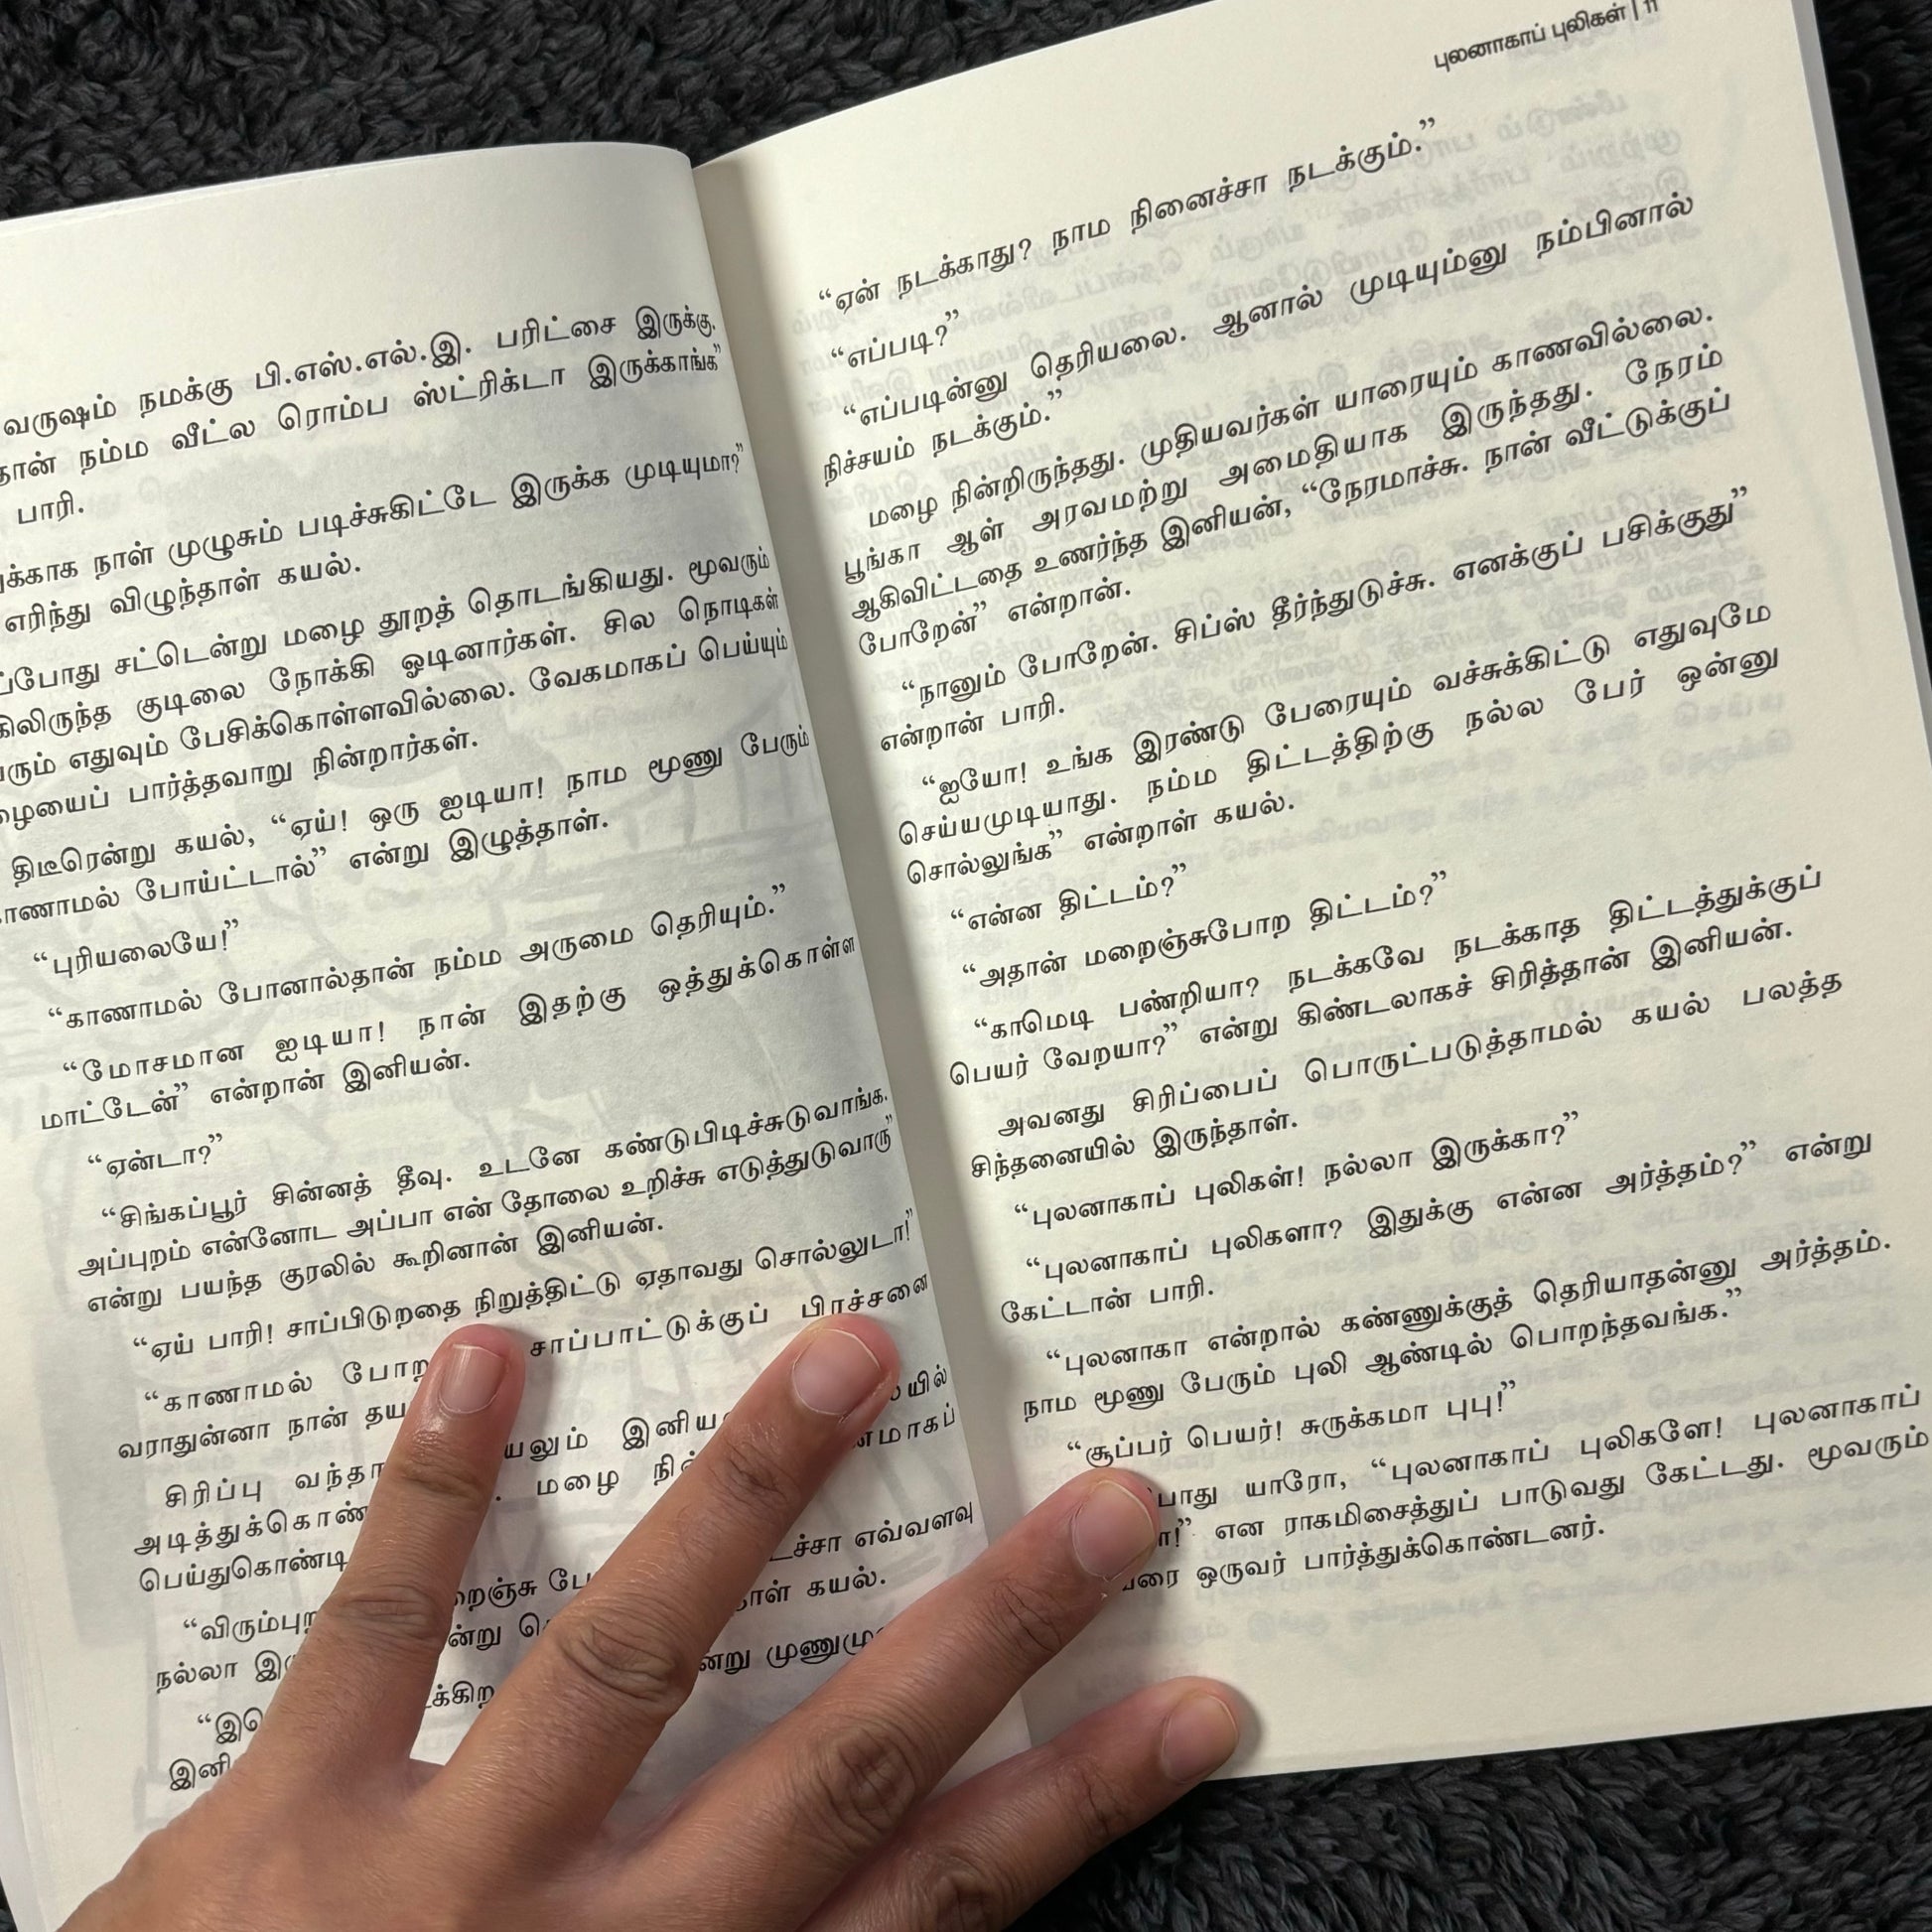 வருஷம் நமக்கு பி.எஸ்.எல்.இ. பரிட்சை இருக்கு.
நம்ம வீட்ல ரொம்ப ஸ்ட்ரிக்டா இருக்காங்க”
பாரி.
நாள் முழுசும் படிச்சுகிட்டே இருக்க முடியுமா?”
எரிந்து விழுந்தாள் கயல்.
சட்டென்று மழை தூறத் தொடங்கியது. மூவரும்
குடிலை நோக்கி ஓடினார்கள். சில நொடிகள்
எதுவும் பேசிக்கொள்ளவில்லை. வேகமாகப் பெய்யும்
பார்த்தவாறு நின்றார்கள்.
திடீரென்று கயல், “ஏய்! ஒரு ஐடியா! நாம மூணு பேரும்
போய்ட்டால்” என்று இழுத்தாள்.
“புரியலையே!”
“காணாமல் போனால்தான் நம்ம அருமை தெரியும்.”
“மோசமான ஐடியா! நான் இதற்கு ஒத்துக்கொள்ள
மாட்டேன்” என்றான் இனியன்.
“ஏன்டா?”
“சிங்கப்பூர் சின்னத் தீவு. உடனே கண்டுபிடிச்சுடுவாங்க.
அப்புறம் என்னோட அப்பா என் தோலை உறிச்சு எடுத்துடுவாரு”
என்று பயந்த குரலில் கூறினான் இனியன்.
“ஏய் பாரி! சாப்பிடுறதை நிறுத்திட்டு ஏதாவது சொல்லுடா!”
“காணாமல் சாப்பாட்டுக்குப் பிரச்சனை
வராதுன்னா நான்
சிரிப்பு
மழை
எவ்வளவு
கயல்.
நல்லா
புலனாகாப் புலிகள் | 11
“ஏன் நடக்காது? நாம நினைச்சா நடக்கும்.”
“எப்படி?”
“எப்படின்னு தெரியலை. ஆனால் முடியும்னு நம்பினால்
நிச்சயம் நடக்கும்.”
மழை நின்றிருந்தது. முதியவர்கள் யாரையும் காணவில்லை.
பூங்கா ஆள் அரவமற்று அமைதியாக இருந்தது. நேரம்
ஆகிவிட்டதை உணர்ந்த இனியன், “நேரமாச்சு. நான் வீட்டுக்குப்
போறேன்” என்றான்.
“நானும் போறேன். சிப்ஸ் தீர்ந்துடுச்சு. எனக்குப் பசிக்குது”
என்றான் பாரி.
“ஐயோ! உங்க இரண்டு பேரையும் வச்சுக்கிட்டு எதுவுமே
செய்யமுடியாது. நம்ம திட்டத்திற்கு நல்ல பேர் ஒன்னு
சொல்லுங்க” என்றாள் கயல்.
“என்ன திட்டம்?”
“அதான் மறைஞ்சுபோற திட்டம்?”
“காமெடி பண்றியா? நடக்கவே நடக்காத திட்டத்துக்குப்
பெயர் வேறயா?” என்று கிண்டலாகச் சிரித்தான் இனியன்.
அவனது சிரிப்பைப் பொருட்படுத்தாமல் கயல் பலத்த
சிந்தனையில் இருந்தாள்.
“புலனாகாப் புலிகள்! நல்லா இருக்கா?”
“புலனாகாப் புலிகளா? இதுக்கு என்ன அர்த்தம்?” என்று
கேட்டான் பாரி.
“புலனாகா என்றால் கண்ணுக்குத் தெரியாதன்னு அர்த்தம்.
நாம மூணு பேரும் புலி ஆண்டில் பொறந்தவங்க.”
“சூப்பர் பெயர்! சுருக்கமா புபு!”
யாரோ, “புலனாகாப் புலிகளே! புலனாகாப்
என ராகமிசைத்துப் பாடுவது கேட்டது. மூவரும்
ஒருவர் பார்த்துக்கொண்டனர்.